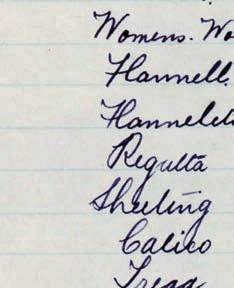 Womens. Wo
Flannell.
Flannelet
Regulta
Sheeting
Calico